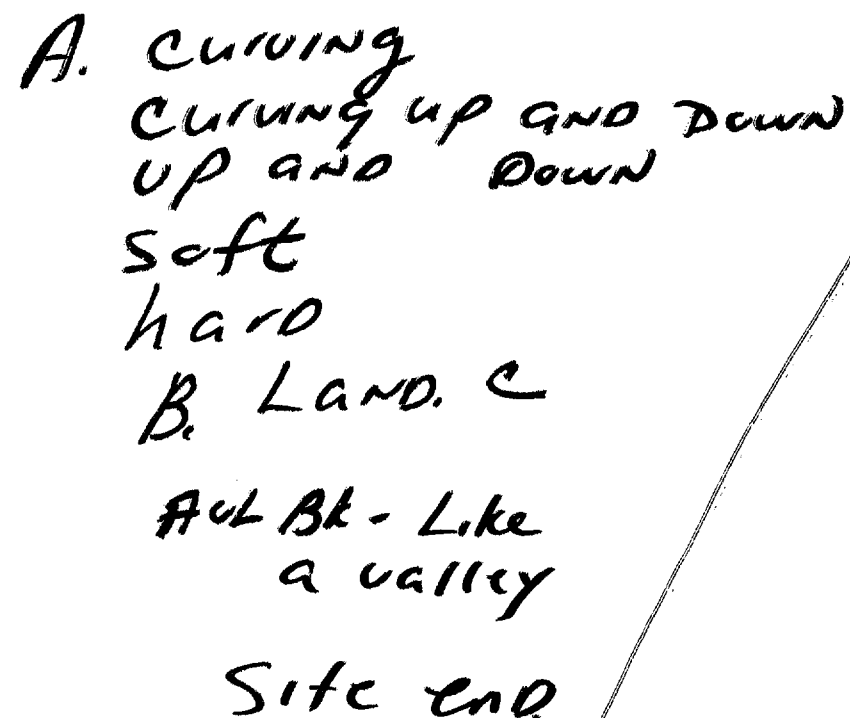 A. Curving
Curving up and Down
up and Down
soft
hard
B. Land. C
Aol Bk - Like
a valley
Site end.